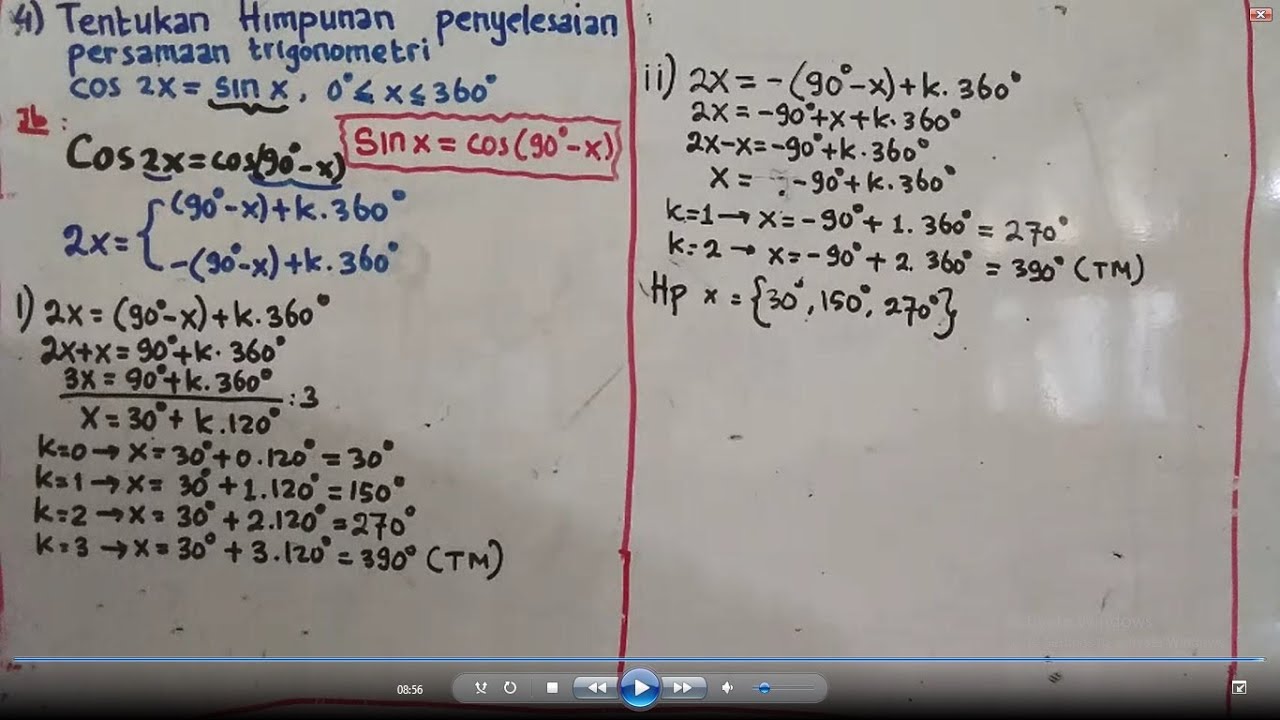 4) Tentukan Himpunan penyelesaian
persamaan trigonometri
cos 2x = sin x, 0° ≤ x ≤ 360°
Jb :
Cos 2x = cos(90° - x)
Sin x = cos(90° - x)
2x = { (90° - x) + k. 360°
-(90° - x) + k. 360°
1) 2x = (90° - x) + k. 360°
2x + x = 90° + k. 360°
3x = 90° + k. 360°
: 3
x = 30° + k. 120°
k=0 → x = 30° + 0. 120° = 30°
k=1 → x = 30° + 1. 120° = 150°
k=2 → x = 30° + 2. 120° = 270°
k=3 → x = 30° + 3. 120° = 390° (TM)
ii) 2x = -(90° - x) + k. 360°
2x = -90° + x + k. 360°
2x - x = -90° + k. 360°
x = -90° + k. 360°
k=1 → x = -90° + 1. 360° = 270°
k=2 → x = -90° + 2. 360° = 390° (TM)
Hp x = {30°, 150°, 270°}
08:56